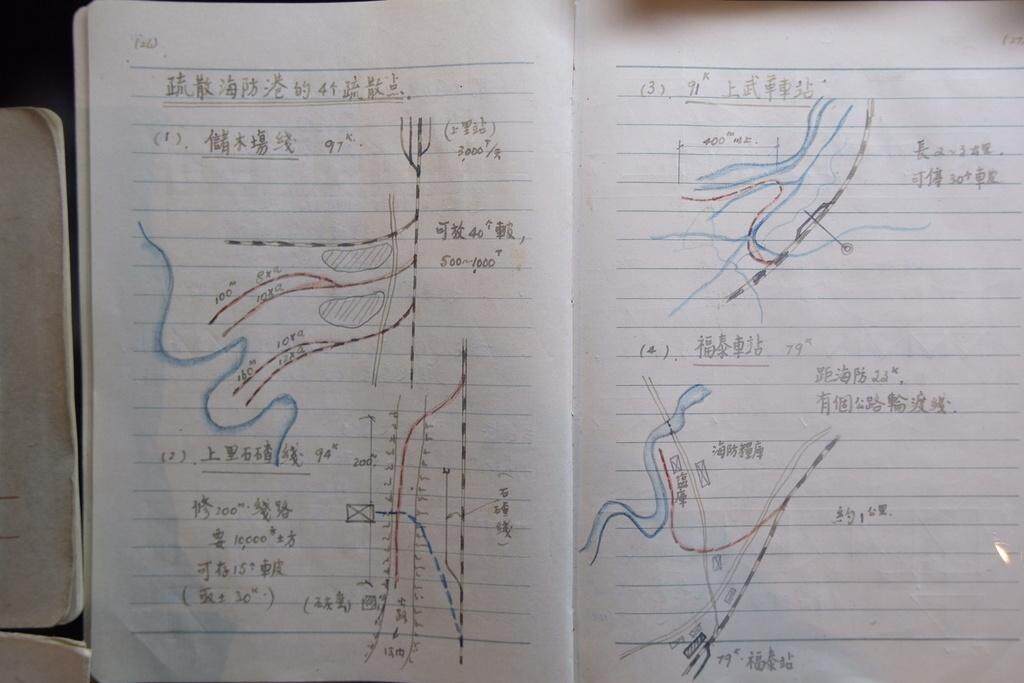 (26)
疏散海防港的4个疏散点.
(1). 儲木塲綫 97ᴷ.
(上里站)
3,000ᵀ/天
可放40个車皮,
500~1,000ᵀ
100ᵐ
8xa
10xa
160ᵐ
10xa
12xa
(2). 上里石碴綫 94ᴷ
修200ᵐ綫路
要10,000 土方
可存15个車皮
(取土30ᴷ.)
200ᵐ
(石碴綫)
公路
河内
(27)
(3) 91ᴷ 上武華車站
400ᵐ以上
長2~3公里.
可停30个車皮
(4). 福泰車站 79ᴷ
距海防22ᴷ.
有個公路輪渡綫.
海防糧庫
鹽庫
約1公里.
79ᴷ.福泰站